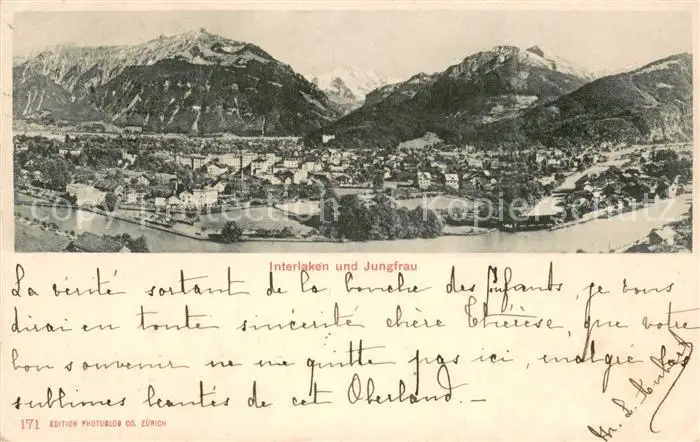 Interlaken und Jungfrau
La vérité sortant de la bouche des Enfants, je vous
dirai en toute sincérité chère Thérèse, que votre
bon souvenir ne me quitte pas ici, malgré les
sublimes beautés de cet Oberland. —
171 EDITION PHOTOGLOB CO. ZÜRICH